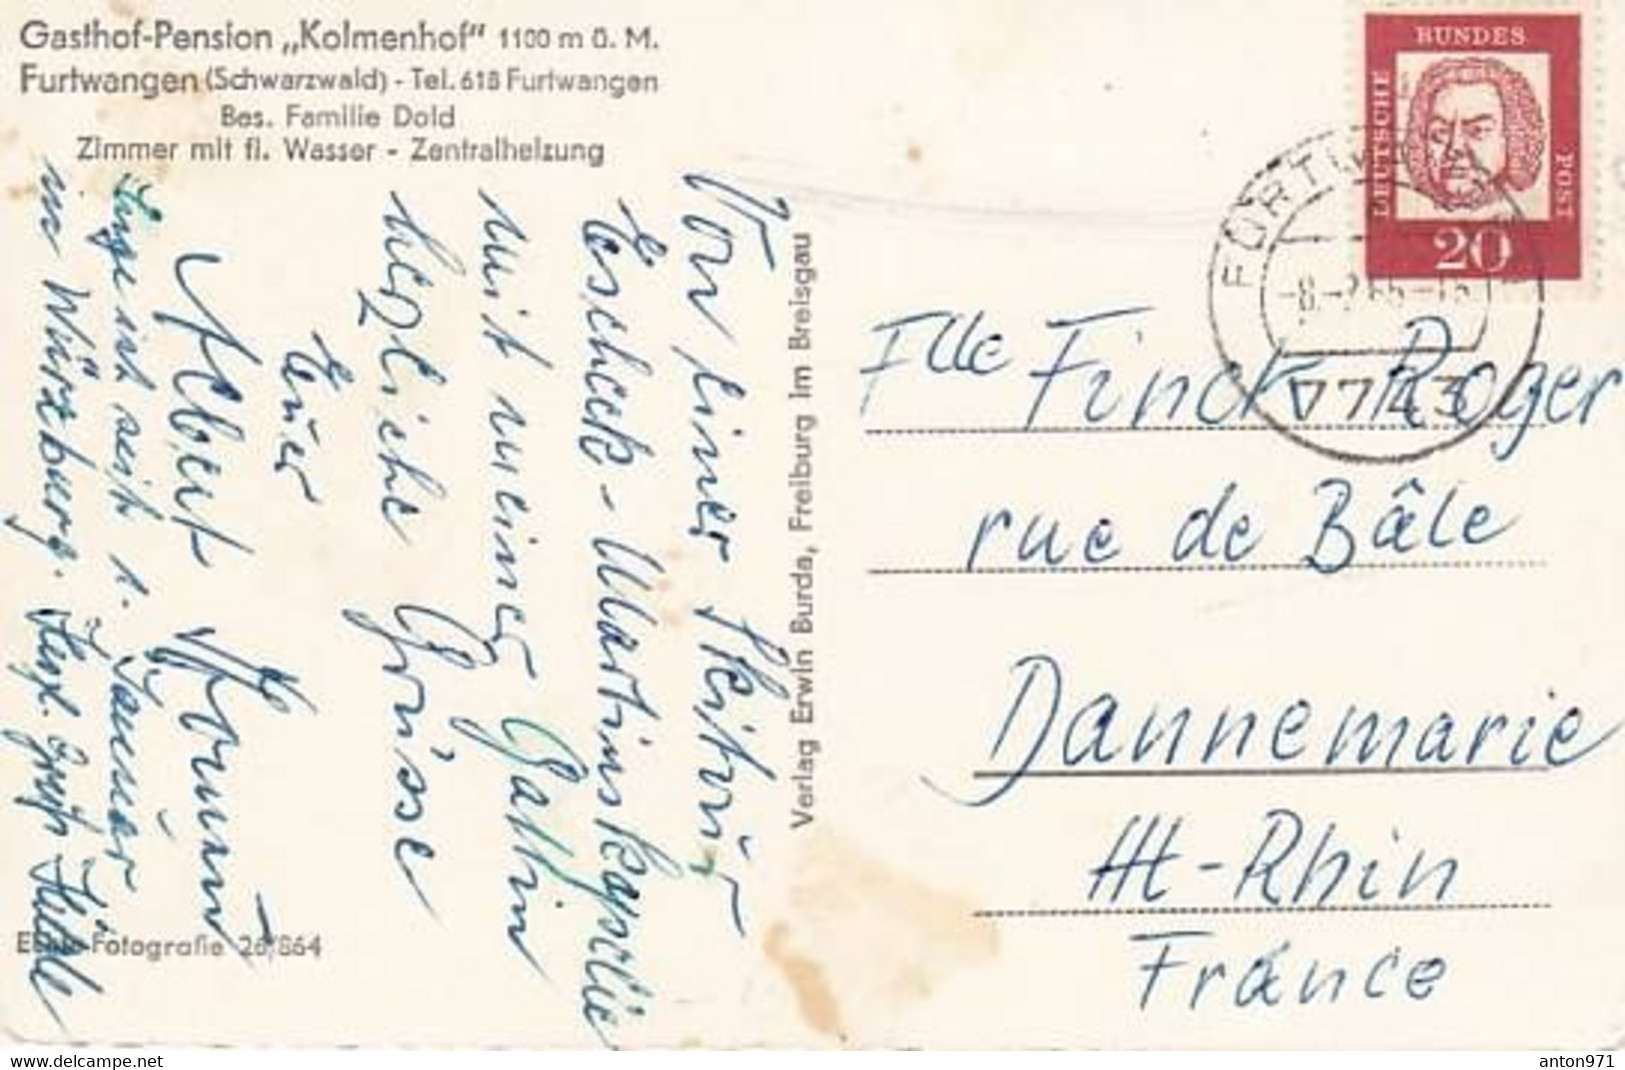 Gasthof-Pension „Kolmenhof“ 1100 m ü. M.
Furtwangen (Schwarzwald) - Tel. 618 Furtwangen
Bes. Familie Dold
Zimmer mit fl. Wasser - Zentralheizung
Von einer Skitour
Escheck - Martinskapelle
mit meiner Gattin
herzliche Grüsse
Euer
Albert
Inge ist seit 1. Januar
in Würzburg. Herzl.
Echte Fotografie 26/864
Verlag Erwin Burda, Freiburg im Breisgau
DEUTSCHE
BUNDES
POST
20
Flle Finck Roger
rue de Bâle
Dannemarie
Ht-Rhin
France
delcampe.net
anton971